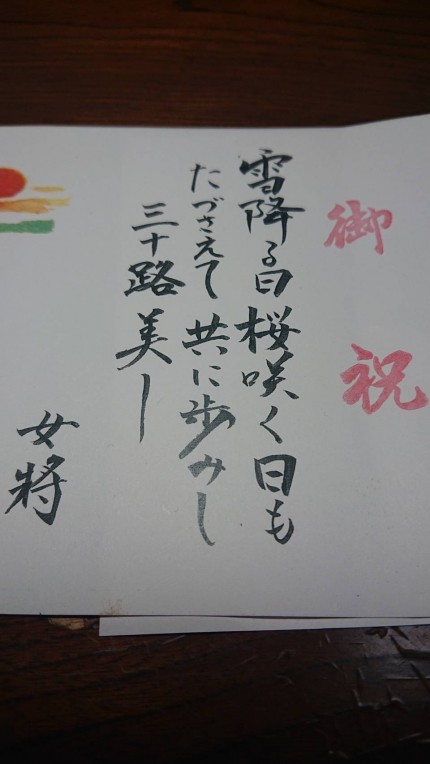 御祝
雪降る日桜咲く日も
たづさえて共に歩みし
三十路美し
女将